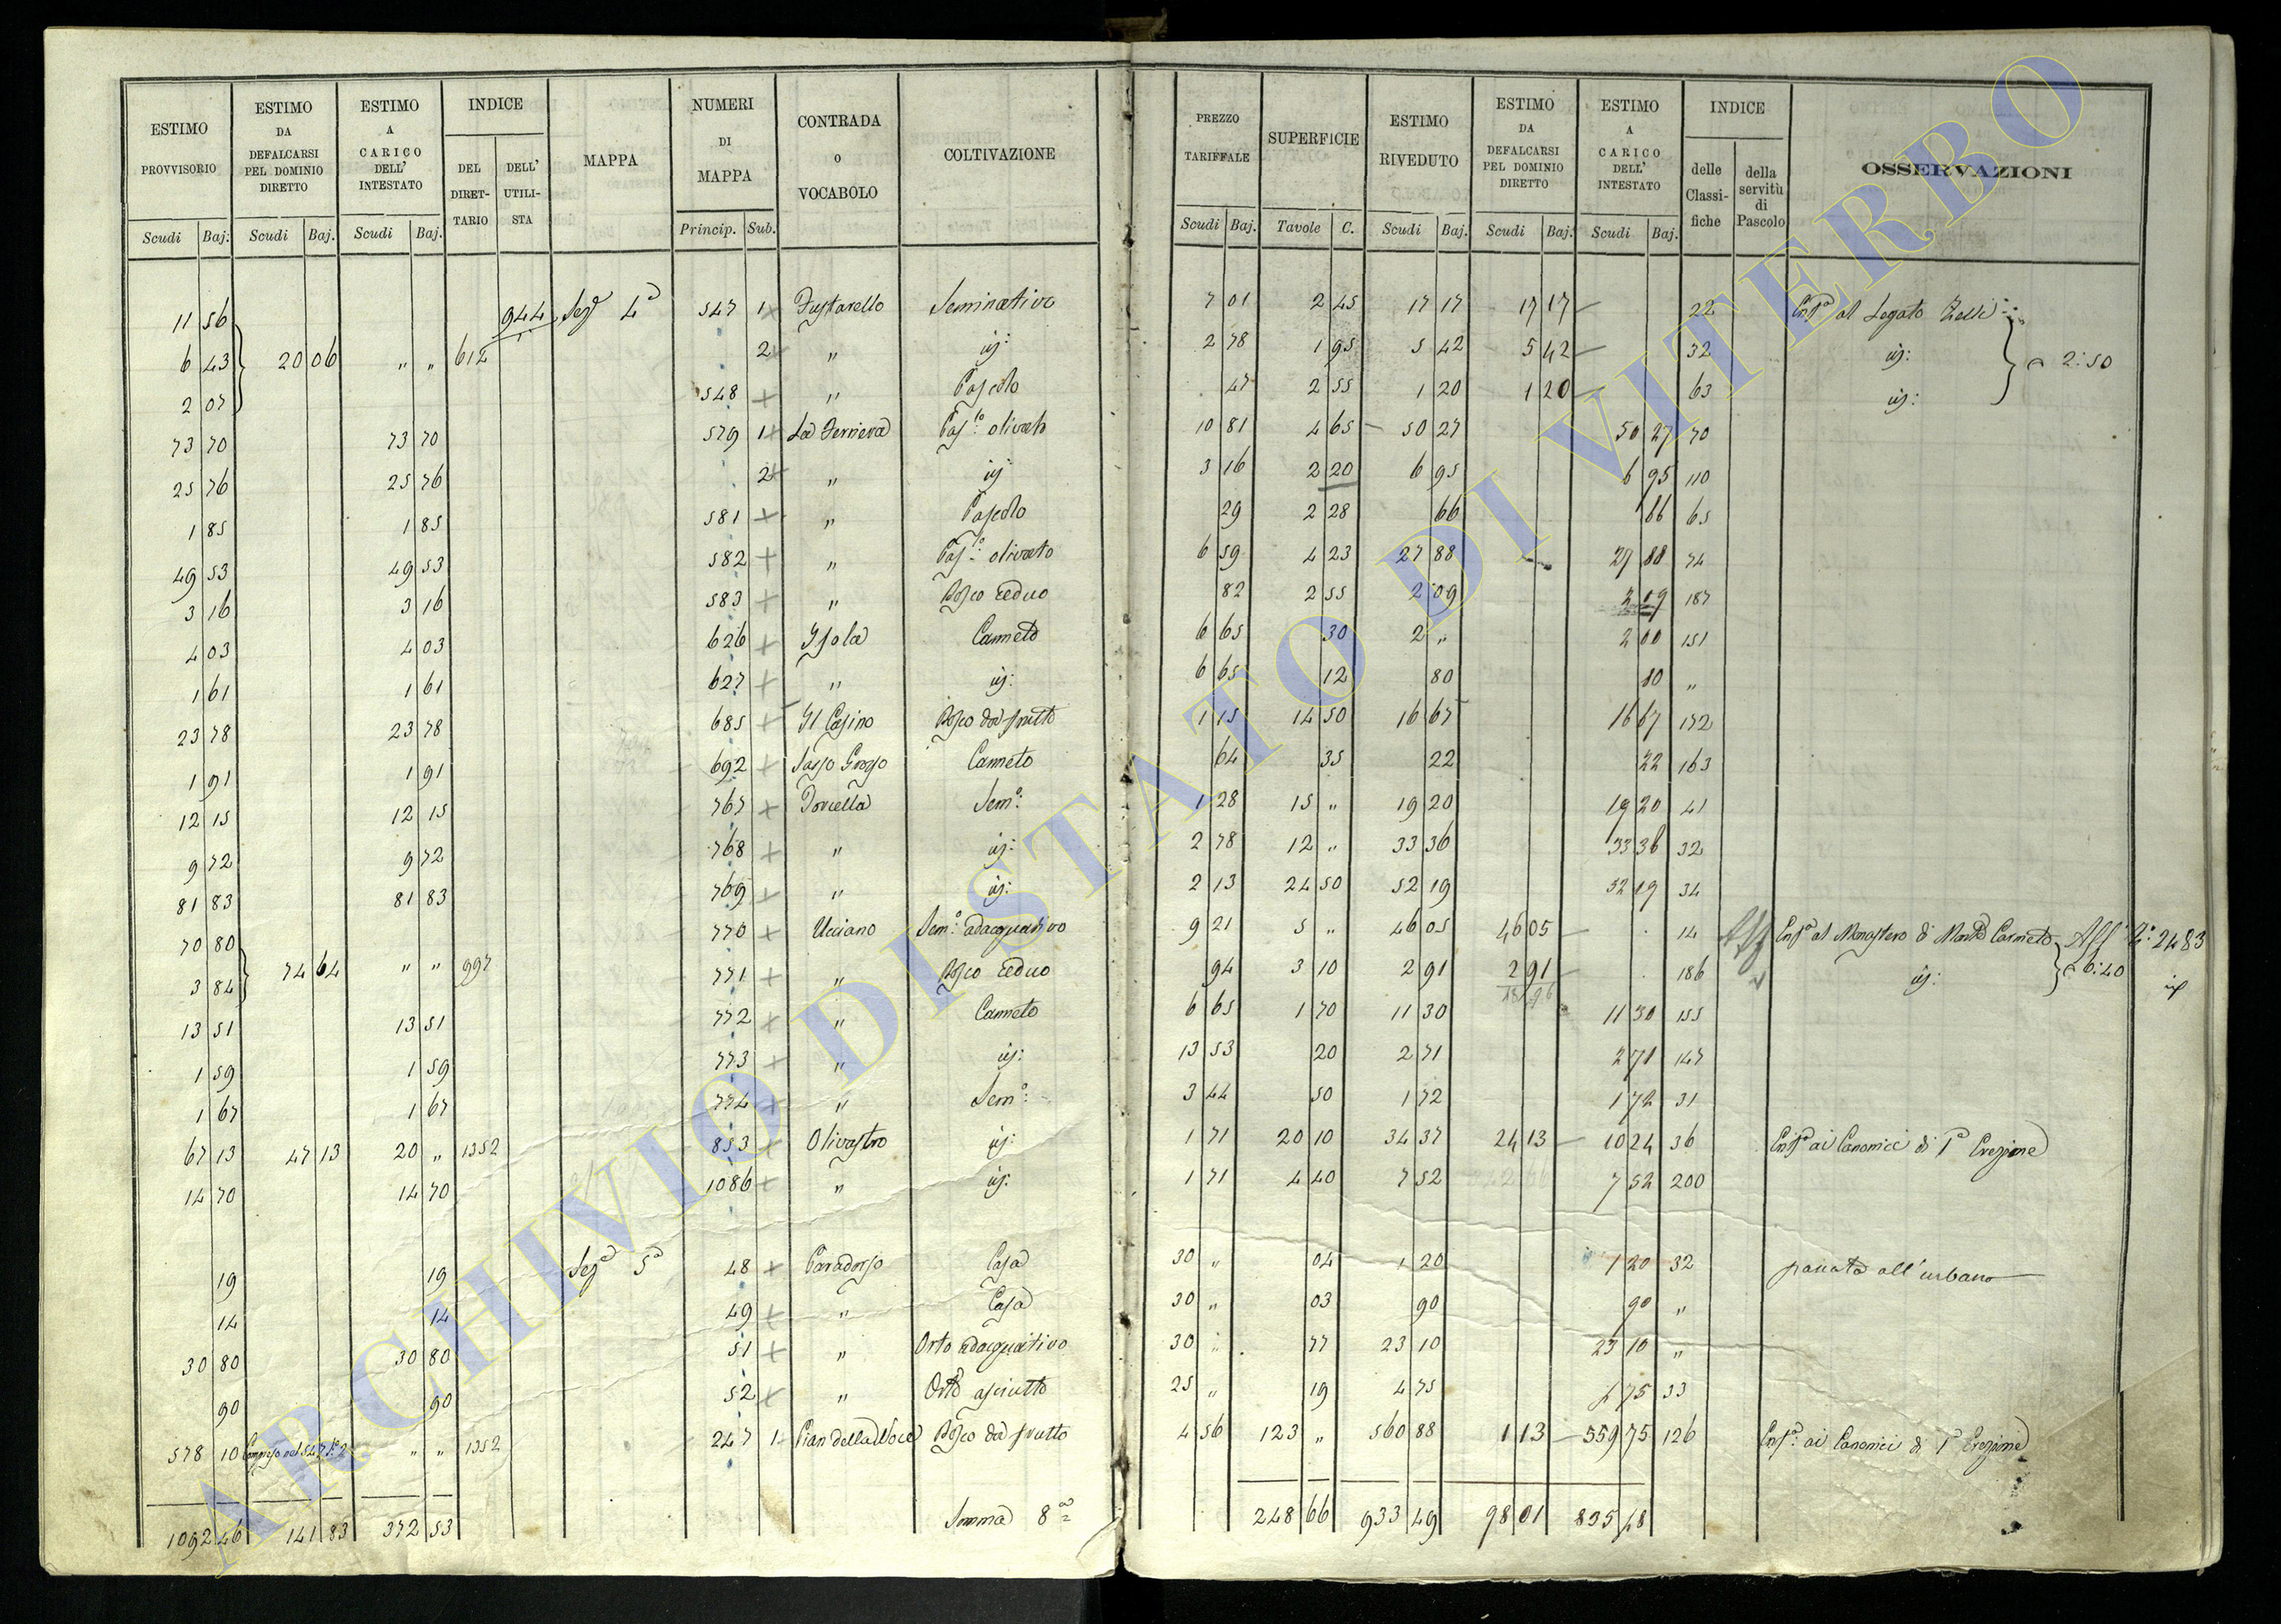 ESTIMO PROVVISORIO Scudi Baj. ESTIMO DA DEFALCARSI PEL DOMINIO DIRETTO Scudi Baj. ESTIMO A CARICO DELL' INTESTATO Scudi Baj. INDICE DEL DIRETTARIO DELL' UTILISTA MAPPA NUMERI DI MAPPA Princip. Sub. CONTRADA O VOCABOLO COLTIVAZIONE PREZZO TARIFFALE Scudi Baj. SUPERFICIE Tavole C. ESTIMO RIVEDUTO Scudi Baj. ESTIMO DA DEFALCARSI PEL DOMINIO DIRETTO Scudi Baj. ESTIMO A CARICO DELL' INTESTATO Scudi Baj. INDICE delle Classifiche della servitù di Pascolo OSSERVAZIONI
11 56 944 Sez.ª 4ª 547 1 Fustarello Seminativo 7 01 2 45 17 17 17 17 22 Enf.ª al Legato Zelli
6 43 20 06 " " 612 2 " id: 2 78 1 95 5 42 5 42 32 id: 2:50
2 07 548 " Pascolo 47 2 55 1 20 1 20 63 id:
73 70 73 70 579 1 La Ferriera Pas.lo olivato 10 81 4 65 50 27 50 27 70
25 76 25 76 2 " id: 3 16 2 20 6 95 6 95 110
1 85 1 85 581 " Pascolo 29 2 28 66 66 65
49 53 49 53 582 " Pas.lo olivato 6 59 4 23 27 88 27 88 74
3 16 3 16 583 " Bosco ceduo 82 2 55 2 09 2 09 187
4 03 4 03 626 Isola Canneto 6 65 30 2 " 2 00 151
1 61 1 61 627 " id: 6 65 12 80 80 "
23 78 23 78 685 Il Casino Bosco da frutto 1 15 14 50 16 67 16 67 172
1 91 1 91 692 Sasso Grosso Canneto 64 35 22 22 163
12 15 12 15 767 Porcella Sem.º: 1 28 15 " 19 20 19 20 41
9 72 9 72 768 " id: 2 78 12 " 33 36 33 36 32
81 83 81 83 769 " id: 2 13 24 50 52 19 52 19 34
70 80 770 Ucciano Sem.º: adacquativo 9 21 5 " 46 05 46 05 14 Enf.ª al Monastero di Monte Carmelo Aff. 2483
3 84 74 64 " " 997 771 " Bosco ceduo 94 3 10 2 91 2 91 186 id: 6:40
13 51 13 51 772 " Canneto 6 65 1 70 11 30 11 30 155
1 59 1 59 773 " id: 13 53 20 2 71 2 71 147
1 67 1 67 774 " Sem.º: 3 44 50 1 72 1 72 31
67 13 47 13 20 " 1352 853 Olivastro id: 1 71 20 10 34 37 24 13 10 24 36 Enf.ª ai Canonici di 1ª Erezione
14 70 14 70 1086 " id: 1 71 4 40 7 52 7 52 200
19 19 Sez.ª 5ª 48 Paradosso Casa 30 " 04 1 20 1 20 32 passata all'urbano
14 14 49 " Casa 30 " 03 90 90 "
30 80 30 80 51 " Orto adacquativo 30 " 77 23 10 23 10 "
90 90 52 " Orto asciutto 25 " 19 4 75 4 75 33
578 10 Compreso nel 547 " " 1352 247 1 Pian della Noce Bosco da frutto 4 56 123 " 560 88 1 13 559 75 126 Enf.ª: ai Canonici di 1ª Erezione
1092 46 141 83 372 53 Somma 8ª 248 66 933 49 98 01 835 48
ARCHIVIO DI STATO DI VITERBO